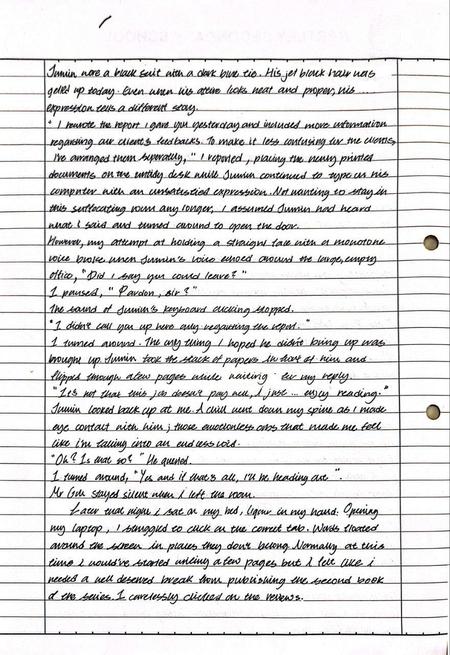 Jumin wore a black suit with a dark blue tie. His jet black hair was
gelled up today. Even when his attire looks neat and proper, his
expression tells a different story.
" I rewrote the report I gave you yesterday and included more information
regarding our client's feedbacks. To make it less confusing for the clients,
I've arranged them seperately, " I reported, placing the newly printed
documents on the untidy desk while Jumin continued to type on his
computer with an unsatisfied expression. Not wanting to stay in
this suffocating room any longer, I assumed Jumin had heard
what I said and turned around to open the door.
However, my attempt at holding a straight face with a monotone
voice broke when Jumin's voice echoed around the large, empty
office, "Did I say you could leave?"
I paused, " Pardon, sir?"
The sound of Jumin's keyboard clicking stopped.
"I didn't call you up here only regarding the report."
I turned around. The only thing I hoped he didn't bring up was
brought up. Jumin took the stack of papers in front of him and
flipped through a few pages while waiting for my reply.
"It's not that this job doesn't pay well, I just ... enjoy reading."
Jumin looked back up at me. A chill went down my spine as I made
eye contact with him; those emotionless eyes that made me feel
like I'm falling into an endless void.
"Oh? Is that so?" He queried.
I turned around, "Yes and if that's all, I'll be heading out".
Mr stayed silent when I left the room.
Later that night I sat on my bed, liquor in my hand. Opening
my laptop, I struggled to click on the correct tab. Words floated
around the screen in places they don't belong. Normally at this
time I would've started writing a few pages but I felt like I
needed a well deserved break from publishing the second book
of the series. I carelessly clicked on the reviews.